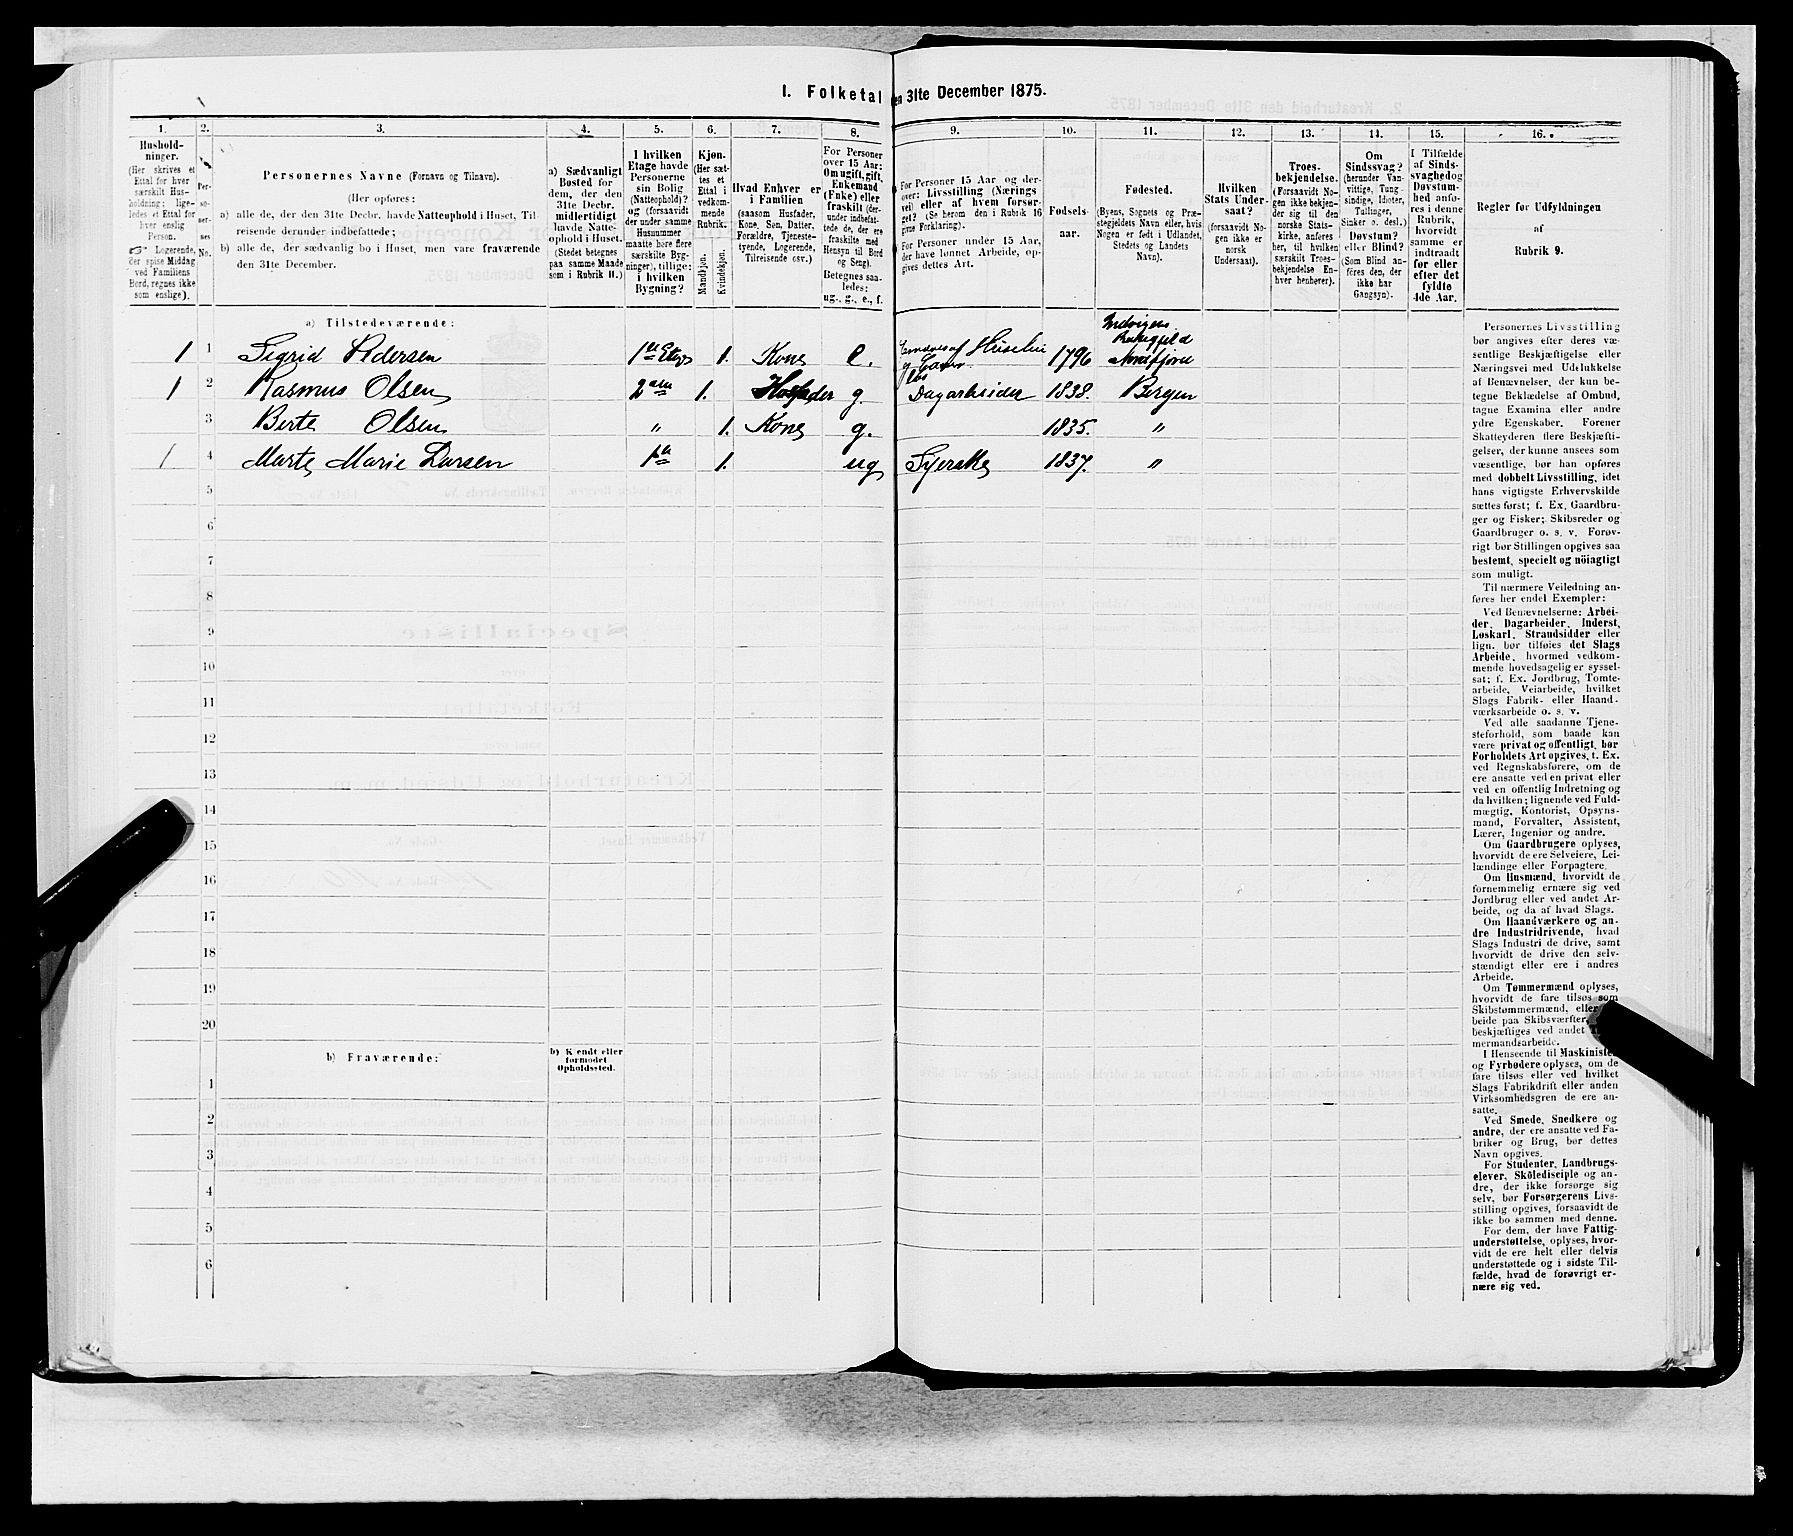 1. Folketal
en 31te December 1875.
1.
2.
3.
4.
5.
6.
7.
8.
9.
10.
11.
12.
13.
14.
15.
16.
Hushold-
ninger.
(Her skrives et
Ettal for hver
særskilt Hus-
holdning; lige-
ledes et Ettal for
hver enslig
Person.
Logerende,
der spise Middag
ved Familiens
Bord, regnes ikke
som enslige).
Per-
so-
ner-
nes
No.
Personernes Navne (Fornavn og Tilnavn).
(Her opføres:
a) alle de, der den 31te Decbr. havde Natteophold i Huset, Til-
reisende derunder indbefattede;
b) alle de, der sædvanlig bo i Huset, men vare fraværende
den 31te December.
a) Sædvanligt
Bosted for
dem, der den
31te Decbr.
midlertidigt
havde Natte-
ophold i Huset.
(Stedet betegnes
paa samme Maade
som i Rubrik 11.)
I hvilken
Etage havde
Personerne
sin Bolig
(Natteophold)?
og (forsaavidt
der under samme
Husnummer
maatte høre flere
særskilte Byg-
ninger), tillige:
i hvilken
Bygning?
Kjøn.
(Her sæt-
tes et
Ettal i
vedkom-
mende
Rubrik.
Mandkjøn.
Kvindekjøn.
Hvad Enhver er
i Familien
(saasom Husfader,
Kone, Søn, Datter,
Forældre, Tjeneste-
tyende, Logerende,
Tilreisende osv.)
For Personer
over 15 Aar:
Om ugift, gift,
Enkemand
(Enke) eller
fraskilt (der-
under indbefat-
tede de, der ere
fraskilte med
Hensyn til Bord
og Seng).
Betegnes saa-
ledes:
ug., g., e., f.
For Personer 15 Aar og der-
over: Livsstilling (Nærings
vei) eller af hvem forsør-
get? (Se herom den i Rubrik 16
givne Forklaring).
For Personer under 15 Aar,
der have lønnet Arbeide, op-
gives dettes Art.
Fødsels-
aar.
Fødested.
(Byens, Sognets og Præ-
stegjeldets Navn eller, hvis
Nogen er født i Udlandet,
Stedets og Landets
Navn).
Hvilken
Stats Under-
saat?
(forsaavidt No-
gen ikke er
norsk
Undersaat).
Troes-
bekjendelse.
(Forsaavidt No-
gen ikke bekjen-
der sig til den
norske Stats-
kirke, anføres
her, til hvilken
særskilt Troes-
bekjendelse En-
hver henhører).
Om
Sindssvag?
(herunder Van-
vittige, Tung-
sindige, Idioter,
Tullinger,
Sinker o. desl.)
Døvstum?
eller Blind?
(Som Blind an-
føres den, der
ikke har
Gangsyn).
I Tilfælde
af Sinds-
svaghed og
Døvstum-
hed anfø-
res i denne
Rubrik,
hvorvidt
samme er
indtraadt
før eller
efter det
fyldte
4de Aar.
Regler før Udfyldningen
af
Rubrik 9.
a) Tilstedeværende:
1 1 Sigrid Pedersen 1ste Etage 1. Kone e. 1796 Nordfjord
1 2 Rasmus Olsen 2den 1. Husfader g. Dagarbeider 1838. Bergen
3 Berte Olsen " 1. Kone g. 1835. "
1 4 Marte Marie Larsen 1ste 1. ug Syerske 1837. "
5
6
7
8
9
10
11
12
13
14
15
16
17
18
19
20
b) Fraværende:
b) Kjendt eller
formodet
Opholdssted.
1
2
3
4
5
6
Personernes Livsstilling
bør angives efter deres væ-
sentlige Beskjæftigelse eller
Næringsvei med Udelukkelse
af Benævnelser, der kun be-
tegne Beklædelse af Ombud,
tagne Examina eller andre
ydre Egenskaber. Forener
Skatteyderen flere Beskjæfti-
gelser, der kunne ansees som
væsentlige, bør han opføres
med dobbelt Livsstilling, idet
hans vigtigste Erhvervskilde
sættes først; f. Ex. Gaardbru-
ger og Fisker; Skibsreder og
Gaardbruger o. s. v. Forøv-
rigt bør Stillingen opgives saa
bestemt, specielt og nöiagtigt
som muligt.
Til nærmere Veiledning an-
føres her endel Exempler:
Ved Benævnelserne: Arbei-
der, Dagarbeider, Inderst,
Løskarl, Strandsidder eller
lign. bør tilføies det Slags
Arbeide, hvormed vedkom-
mende hovedsagelig er syssel-
sat; f. Ex. Jordbrug, Tomte-
arbeide, Veiarbeide, hvilket
Slags Fabrik- eller Haand-
værksarbeide o. s. v.
Ved alle saadanne Tjene-
steforhold, som baade kan
være privat og offentligt, bør
Forholdets Art opgives, t. Ex.
ved Regnskabsførere, om de
ere ansatte ved en privat eller
ved en offentlig Indretning og
da hvilken; lignende ved Fuld-
mægtig, Kontorist, Opsyns-
mand, Forvalter, Assistent,
Lærer, Ingeniør og andre.
Om Gaardbrugere oplyses,
hvorvidt de ere Selveiere, Lei-
lændinge eller Forpagtere.
Om Husmænd, hvorvidt de
fornemmelig ernære sig ved
Jordbrug eller ved andet Ar-
beide, og da af hvad Slags.
Om Haandværkere og an-
dre Industridrivende, hvad
Slags Industri de drive, samt
hvorvidt de drive den selv-
stændigt eller ere i andres
Arbeide.
Om Tømmermænd oplyses,
hvorvidt de fare tilsøs som
Skibstømmermænd, eller
beide paa Skibsværfter,
beskjæftiges ved andet
mermandsarbeide.
I Henseende til Maskinister
og Fyrbødere oplyses, om de
fare tilsøs eller ved hvilket
Slags Fabrikdrift eller anden
Virksomhedsgren de ere an-
satte.
Ved Smede, Snedkere og
andre, der ere ansatte ved Fa-
briker og Brug, bør dettes
Navn opgives.
For Studenter, Landbrugs-
elever, Skôledisciple og an-
dre, der ikke forsørge sig
selv, bør Forsørgerens Livs-
stilling opgives, forsaavidt de
ikke bo sammen med denne.
For dem, der have Fattig-
understøttelse, oplyses, hvor-
vidt de ere helt eller delvis
understøttede og i sidste Til-
fælde, hvad de forøvrigt er-
nære sig ved.